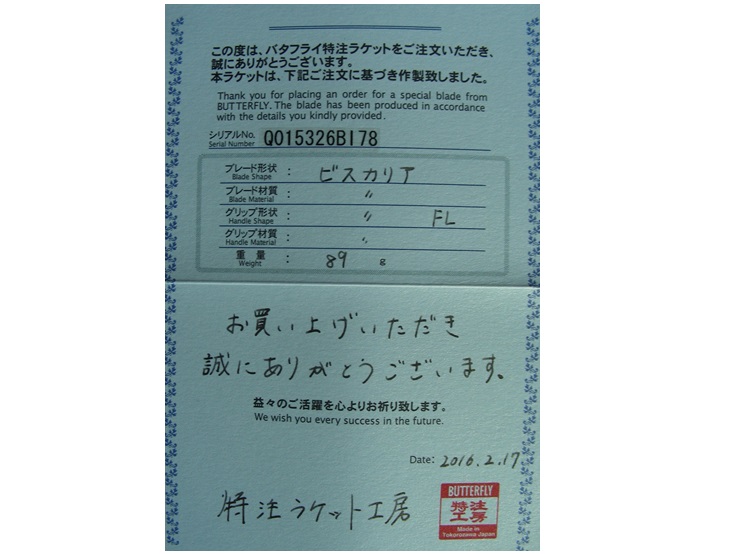 この度は、バタフライ特注ラケットをご注文いただき、
誠にありがとうございます。
本ラケットは、下記ご注文に基づき作製致しました。
Thank you for placing an order for a special blade from
BUTTERFLY. The blade has been produced in accordance
with the details you kindly provided.
シリアルNo.
Serial Number
Q015326B178
ブレード形状
Blade Shape
: ビスカリア
ブレード材質
Blade Material
: 〃
グリップ形状
Handle Shape
: 〃 FL
グリップ材質
Handle Material
: 〃
重量
Weight
: 89 g
お買い上げいただき
誠にありがとうございます。
益々のご活躍を心よりお祈り致します。
We wish you every success in the future.
Date: 2016.2.17
特注ラケット工房
BUTTERFLY
特注
工房
Made in
Tokorozawa Japan